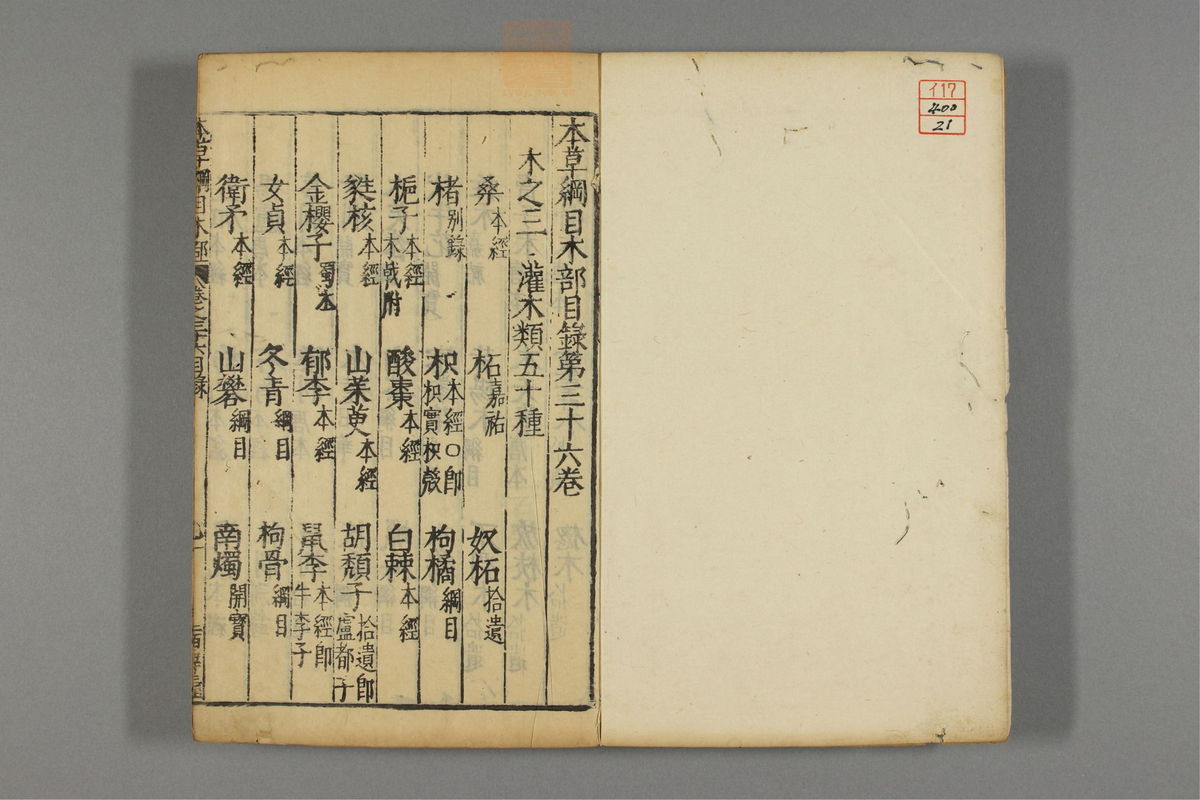 イ17
400
21
本草綱目木部目錄第三十六卷
木之三 灌木類五十種
桑本經 柘嘉祐 奴柘拾遺
楮別錄 枳本經○卽枳實枳殼 枸橘綱目
梔子本經木戟附 酸棗本經 白棘本經
蕤核本經 山茱萸本經 胡頹子拾遺卽盧都子
金櫻子蜀本 郁李本經 鼠李本經卽牛李子
女貞本經 冬青綱目 枸骨綱目
衛矛本經 山礬綱目 南燭開寶
本草綱目木部 卷之三十六目錄